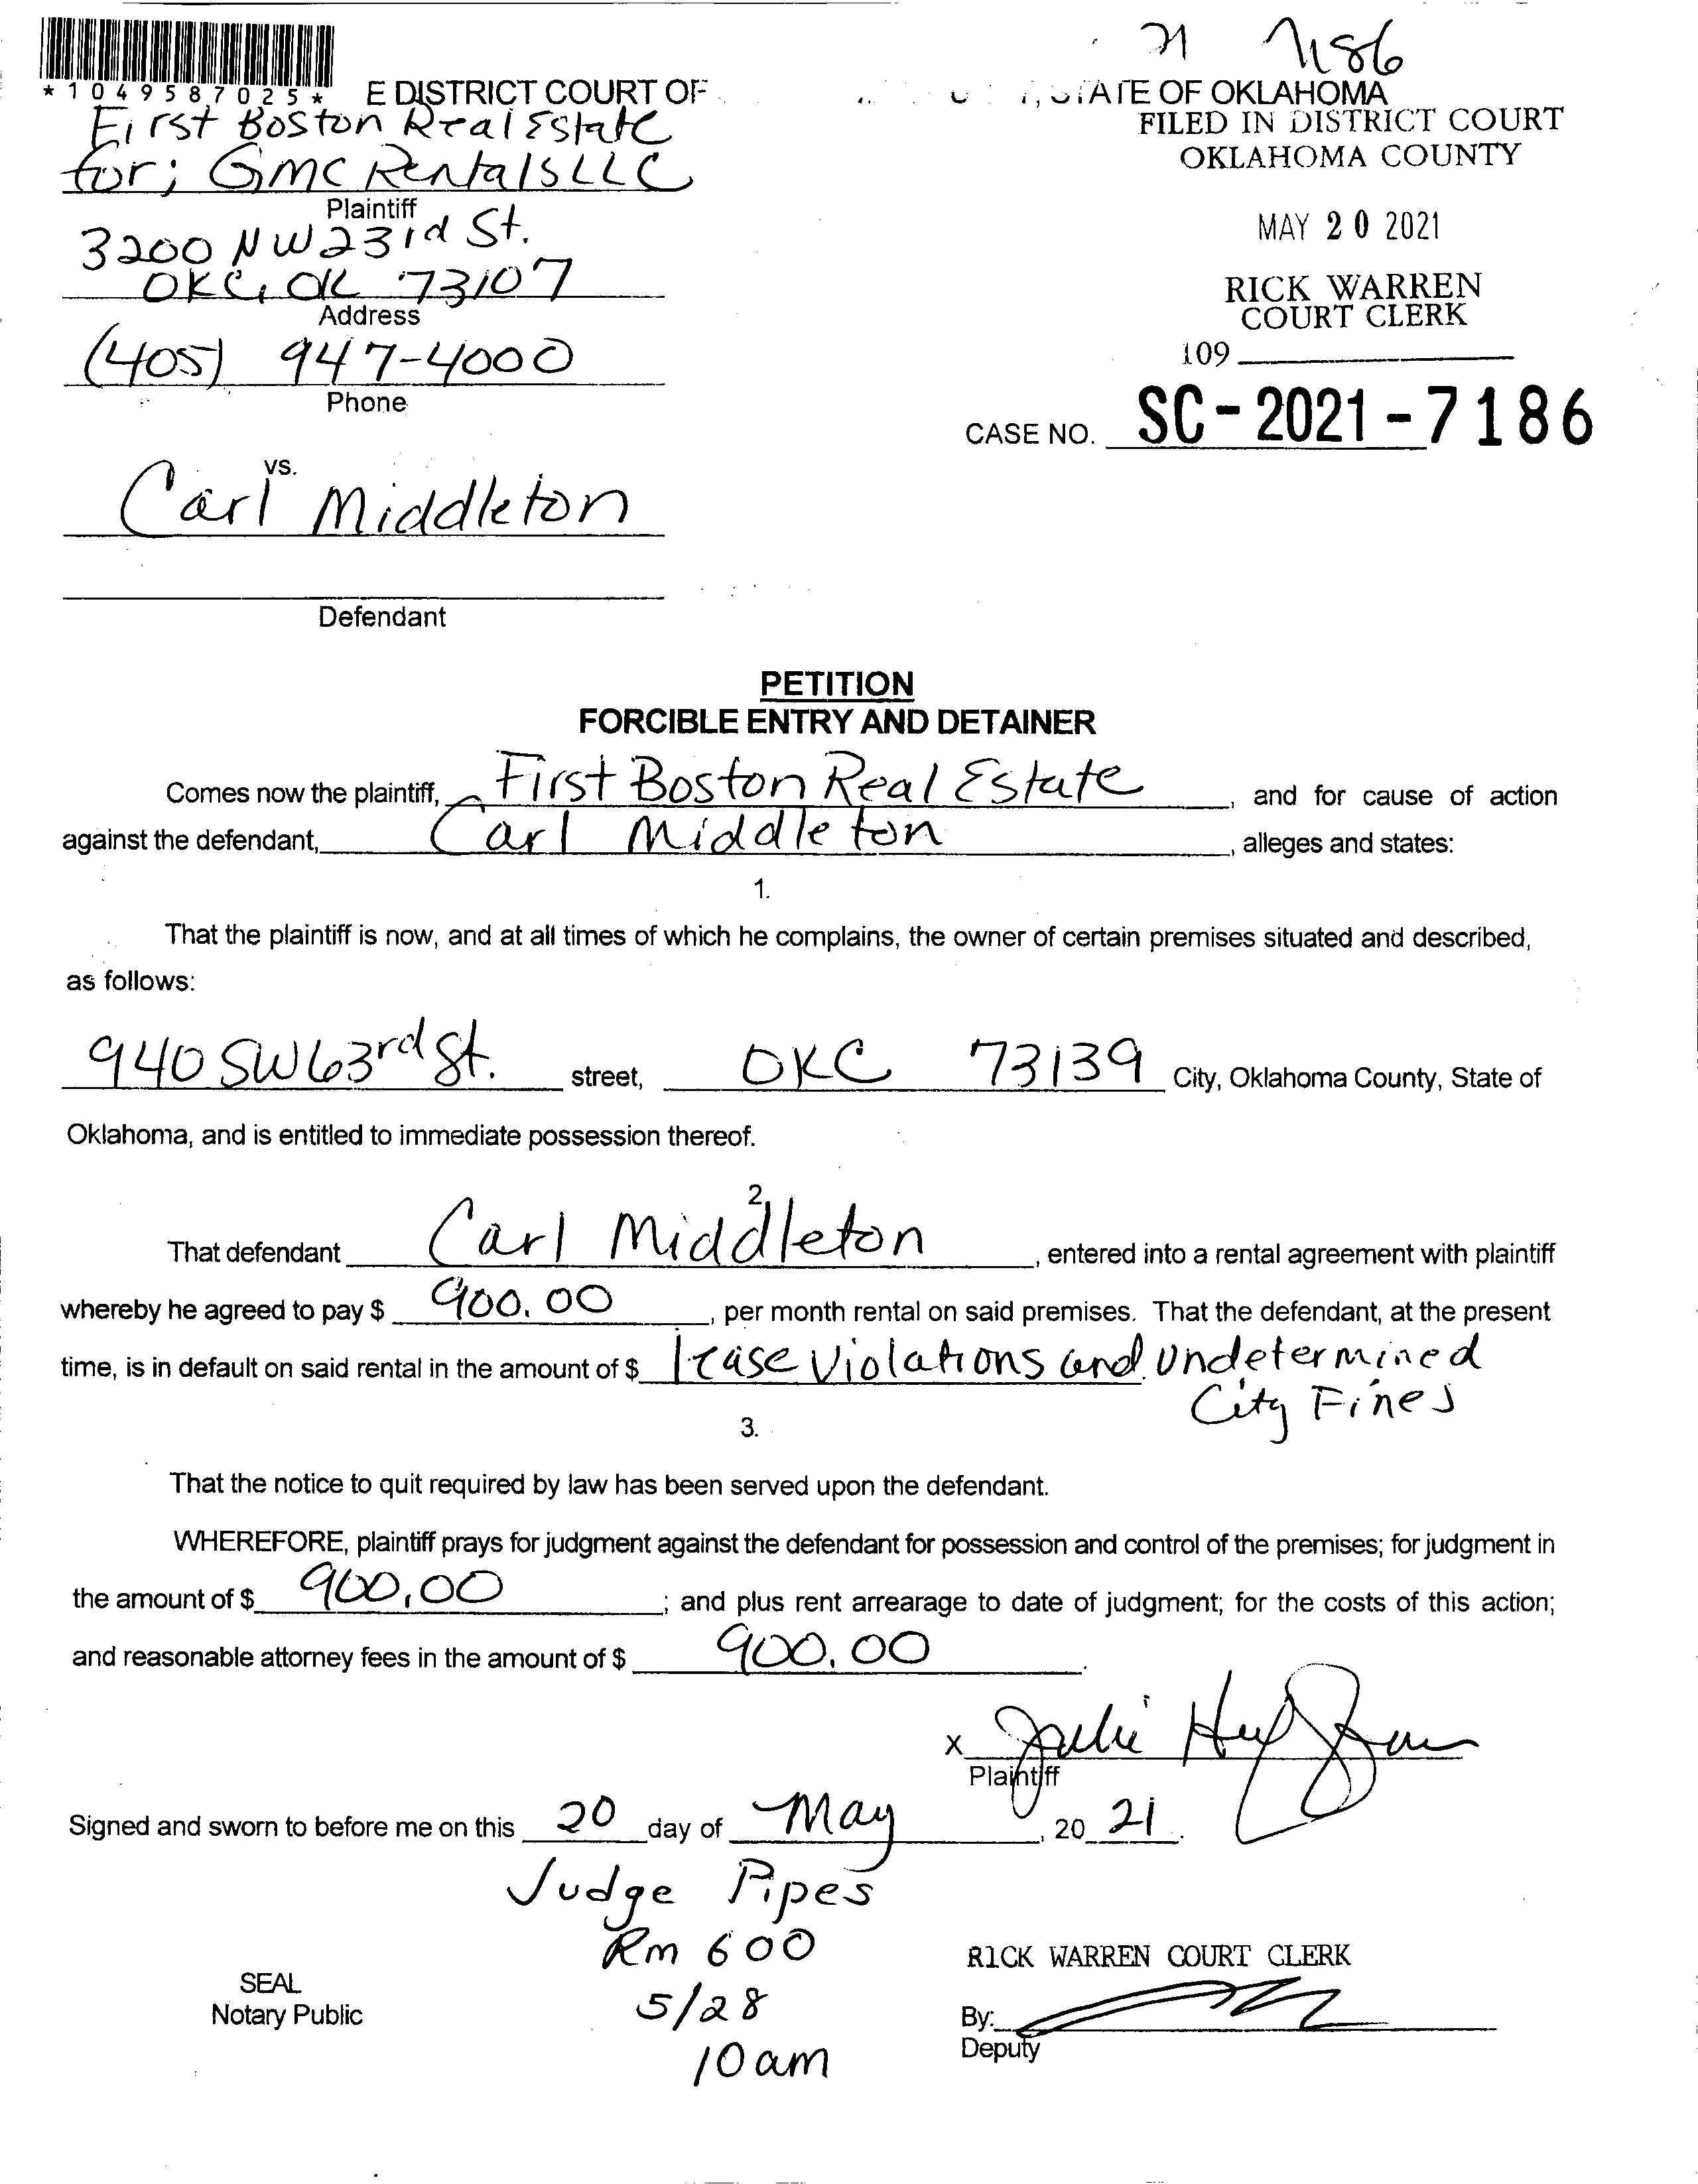 21 7186
*1049587025* E DISTRICT COURT OF , STATE OF OKLAHOMA
First Boston Real Estate
for; GMC Rentals LLC
Plaintiff
3200 NW 23rd St.
OKC, OK 73107
Address
(405) 947-4000
Phone
FILED IN DISTRICT COURT
OKLAHOMA COUNTY
MAY 20 2021
RICK WARREN
COURT CLERK
109
CASE NO. SC-2021-7186
vs.
Carl Middleton
Defendant
PETITION
FORCIBLE ENTRY AND DETAINER
Comes now the plaintiff, First Boston Real Estate, and for cause of action
against the defendant, Carl Middleton, alleges and states:
1.
That the plaintiff is now, and at all times of which he complains, the owner of certain premises situated and described,
as follows:
940 SW 63rd St. street, OKC 73139 City, Oklahoma County, State of
Oklahoma, and is entitled to immediate possession thereof.
2.
That defendant Carl Middleton, entered into a rental agreement with plaintiff
whereby he agreed to pay $ 900.00, per month rental on said premises. That the defendant, at the present
time, is in default on said rental in the amount of $ lease violations and undetermined
City Fines
3.
That the notice to quit required by law has been served upon the defendant.
WHEREFORE, plaintiff prays for judgment against the defendant for possession and control of the premises; for judgment in
the amount of $ 900.00; and plus rent arrearage to date of judgment; for the costs of this action;
and reasonable attorney fees in the amount of $ 900.00.
X Julie
Plaintiff
Signed and sworn to before me on this 20 day of May, 20 21.
Judge Pipes
Rm 600
5/28
10 am
SEAL
Notary Public
RICK WARREN COURT CLERK
By:
Deputy